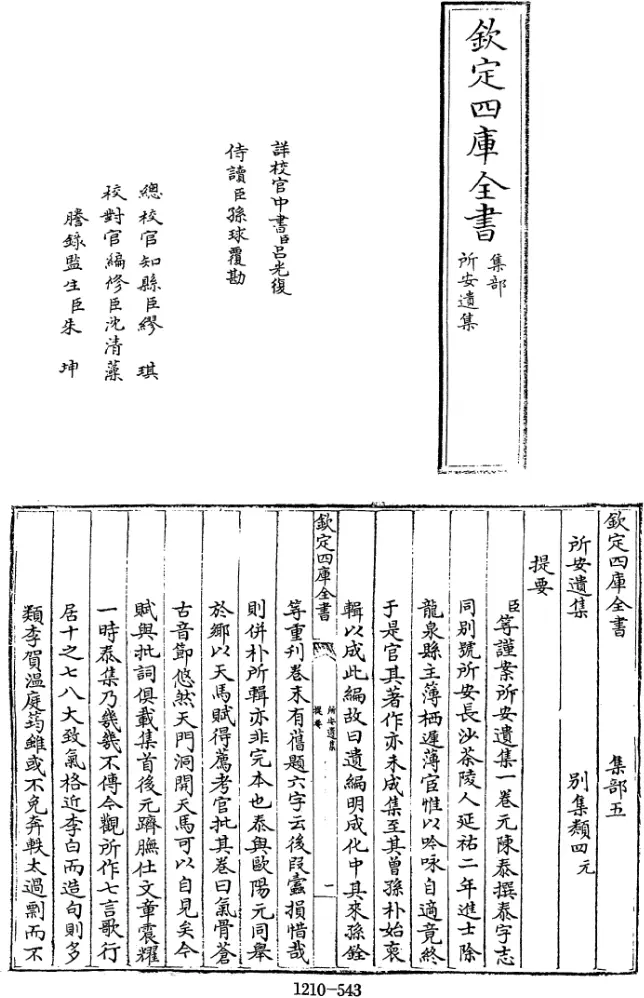 欽定四庫全書
集部
所安遺集
詳校官中書臣呂光復
侍讀臣孫球覆勘
總校官知縣臣繆琪
校對官編修臣沈清藻
謄錄監生臣朱坤
欽定四庫全書 集部五
所安遺集 別集類四元
提要
臣等謹案所安遺集一卷元陳泰撰泰字志
同別號所安長沙茶陵人延祐二年進士除
龍泉縣主薄栖遲薄官惟以吟咏自適竟終
于是官其著作亦未成集至其曾孫朴始裒
輯以成此編故曰遺編明成化中其來孫銓
欽定四庫全書
所安遺集
提要
一
等重刊卷末有舊題六字云後段蠹損惜哉
則併朴所輯亦非完本也泰與歐陽元同舉
於鄉以天馬賦得薦考官批其卷曰氣骨蒼
古音節悠然天門洞開天馬可以自見矣今
賦與批詞俱載集首後元躋膴仕文章震耀
一時泰集乃幾幾不傳今觀所作七言歌行
居十之七八大致氣格近李白而造句則多
類李賀溫庭筠雖或不免奔軼太過剽而不
1210-543